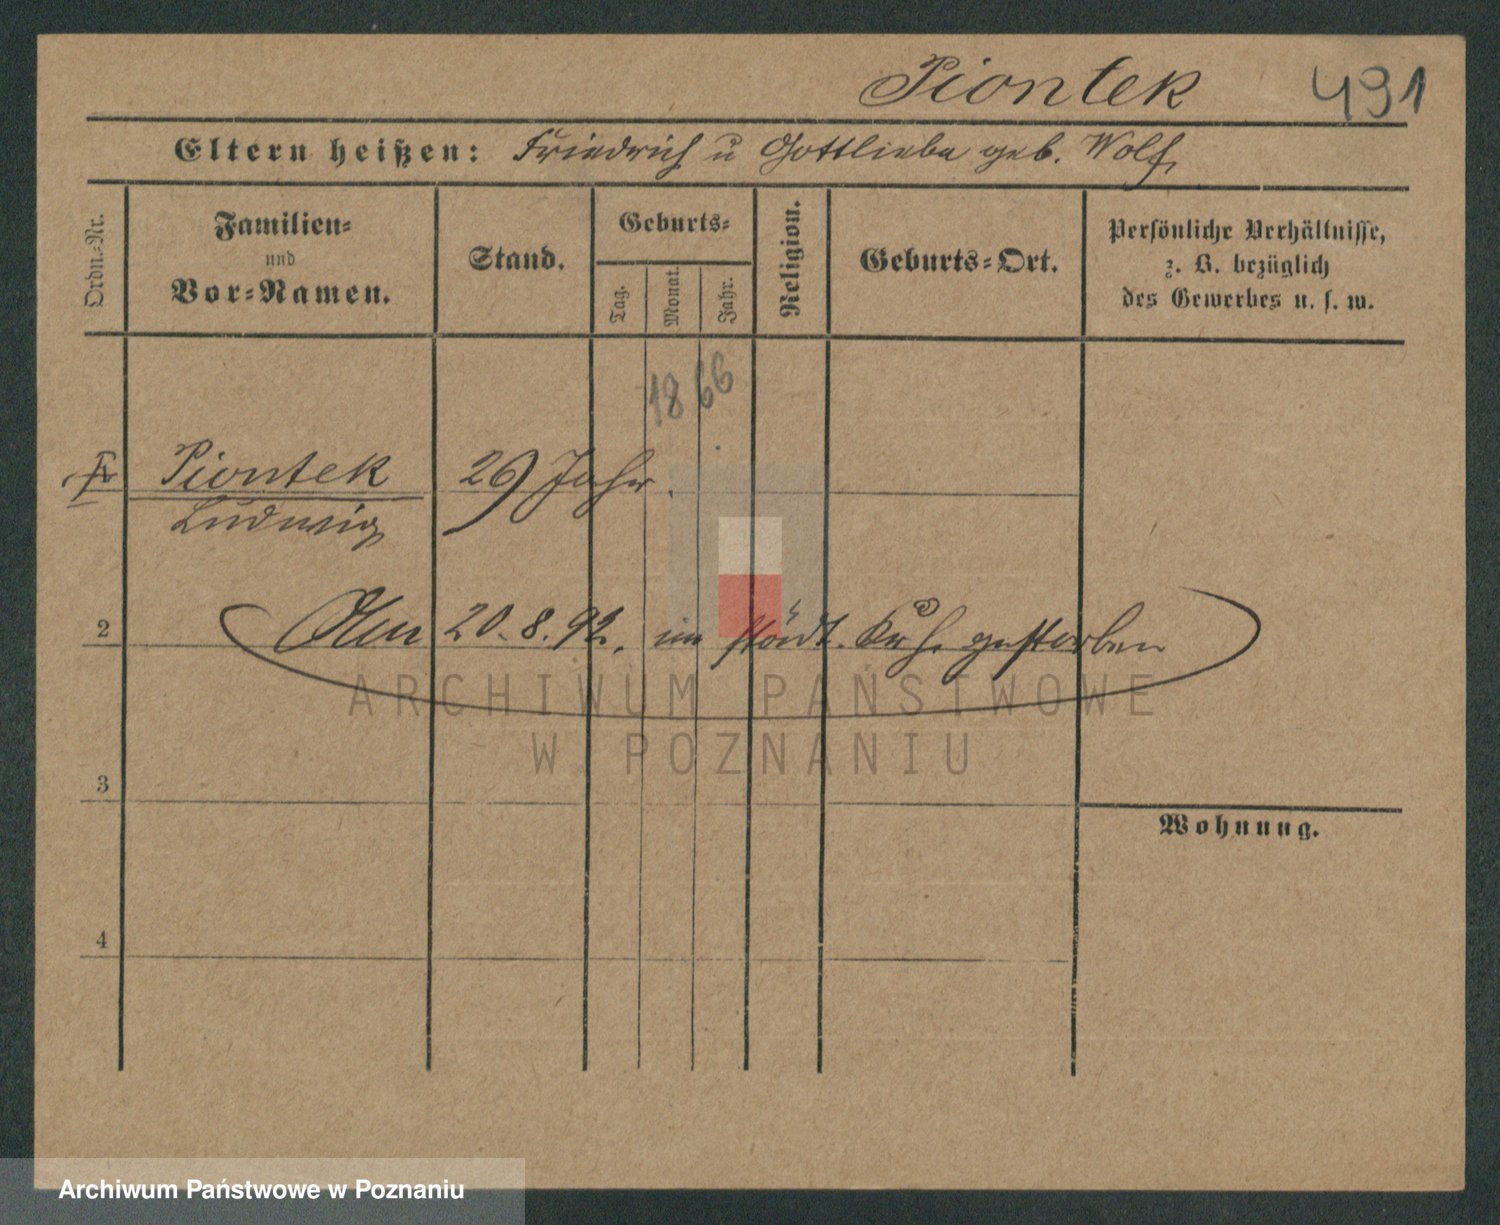 Piontek 491
Eltern heißen: Friedrich u Gottliebe geb. Wolf,
Ordn.-Nr.
Familien-
und
Vor-Namen.
Stand.
Geburts-
Tag.
Monat.
Jahr.
Religion.
Geburts-Ort.
Persönliche Verhältnisse,
z. B. bezüglich
des Gewerbes u. s. w.
1866
Piontek 29 Jahr.
Ludwig
2 Am 20.8.92. im städt. gestorben
ARCHIWUM PAŃSTWOWE
W POZNANIU
3
Wohnung.
4
Archiwum Państwowe w Poznaniu